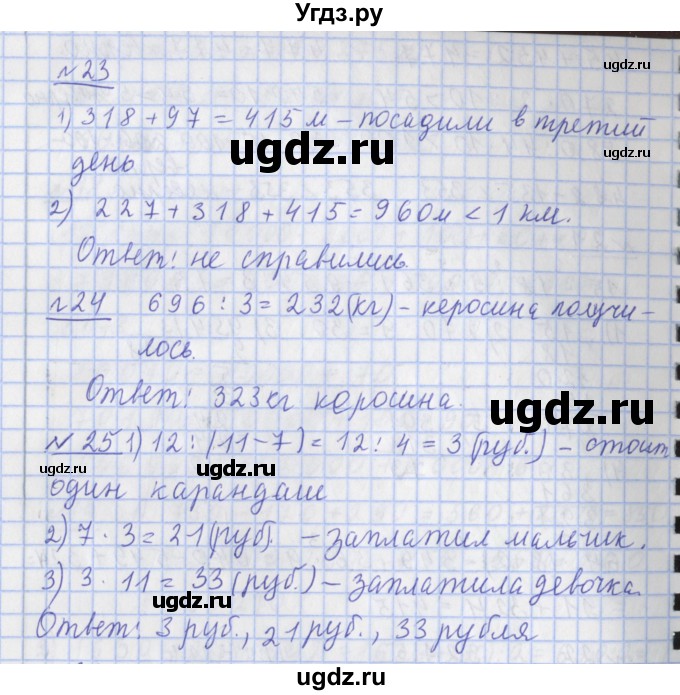 Угдз.ру
№23
ugdz.ru
ugdz.ru
1) 318 + 97 = 415 м – посадили в третий
ugdz.ru
ugdz.ru
день
2) 227 + 318 + 415 = 960м < 1 км.
Ответ: не справились.
ugdz.ru
№24 696 : 3 = 232 (кг) – керосина получи-
лось.
ugdz.ru
Ответ: 323кг керосина.
№ 25 1) 12 : (11-7) = 12 : 4 = 3 (руб.) – стоит
ugdz.ru
ugdz.ru
один карандаш
2) 7 · 3 = 21 (руб). – заплатил мальчик.
3) 3 · 11 = 33 (руб.) – заплатила девочка.
ugdz.ru
Ответ: 3 руб., 21 руб., 33 рубля
ugdz.ru